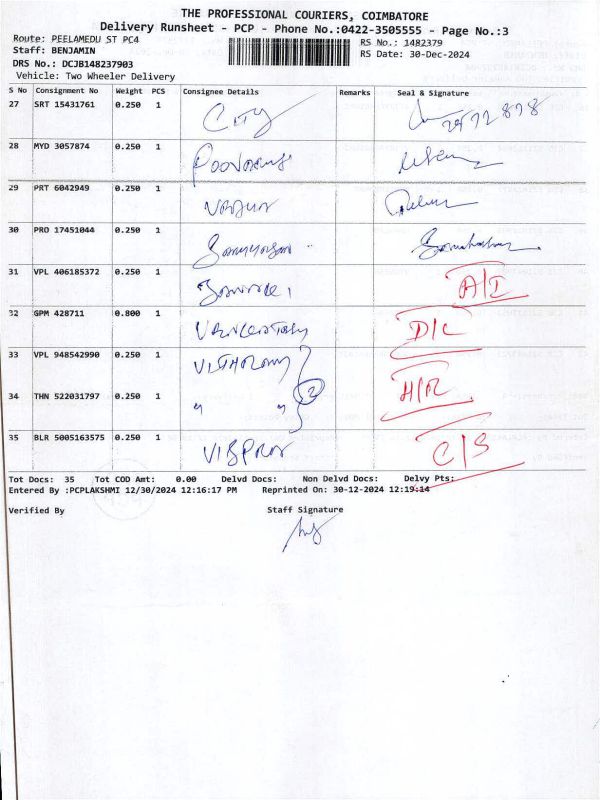 THE PROFESSIONAL COURIERS, COIMBATORE
Delivery Runsheet - PCP - Phone No.:0422-3505555 - Page No.:3
Route: PEELAMEDU ST PC4 RS No.: 1482379
Staff: BENJAMIN RS Date: 30-Dec-2024
DRS No.: DCJB148237903
Vehicle: Two Wheeler Delivery
S No Consignment No Weight PCS Consignee Details Remarks Seal & Signature
27 SRT 15431761 0.250 1 CITY
28 MYD 3057874 0.250 1
29 PRT 6042949 0.250 1
30 PRO 17451044 0.250 1
31 VPL 406185372 0.250 1 A/I
32 GPM 428711 0.800 1 D/C
33 VPL 948542990 0.250 1
34 THN 522031797 0.250 1 " " 2 H/R
35 BLR 5005163575 0.250 1 C/S
Tot Docs: 35 Tot COD Amt: 0.00 Delvd Docs: Non Delvd Docs: Delvy Pts:
Entered By :PCPLAKSHMI 12/30/2024 12:16:17 PM Reprinted On: 30-12-2024 12:19:14
Verified By Staff Signature